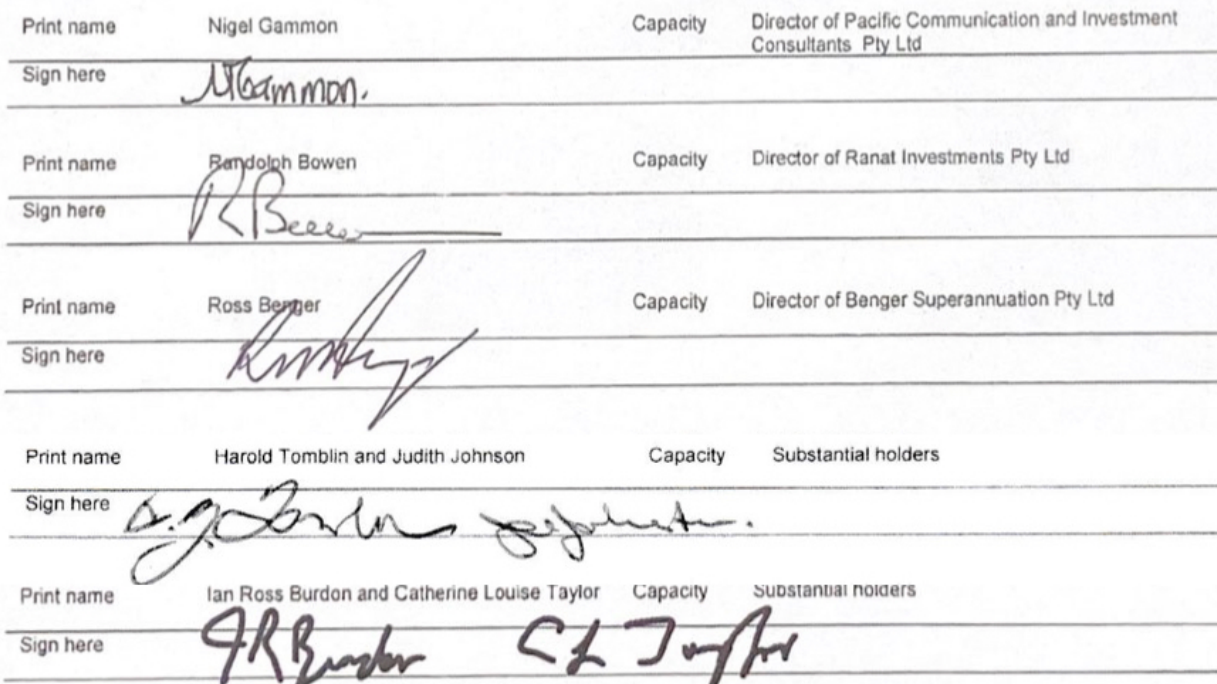 Print name Nigel Gammon Capacity Director of Pacific Communication and Investment
Consultants Pty Ltd
Sign here NTGammon.
Print name Randolph Bowen Capacity Director of Ranat Investments Pty Ltd
Sign here R B
Print name Ross Benger Capacity Director of Benger Superannuation Pty Ltd
Sign here
Print name Harold Tomblin and Judith Johnson Capacity Substantial holders
Sign here
Print name Ian Ross Burdon and Catherine Louise Taylor Capacity Substantial holders
Sign here IRBurdon CL Taylor